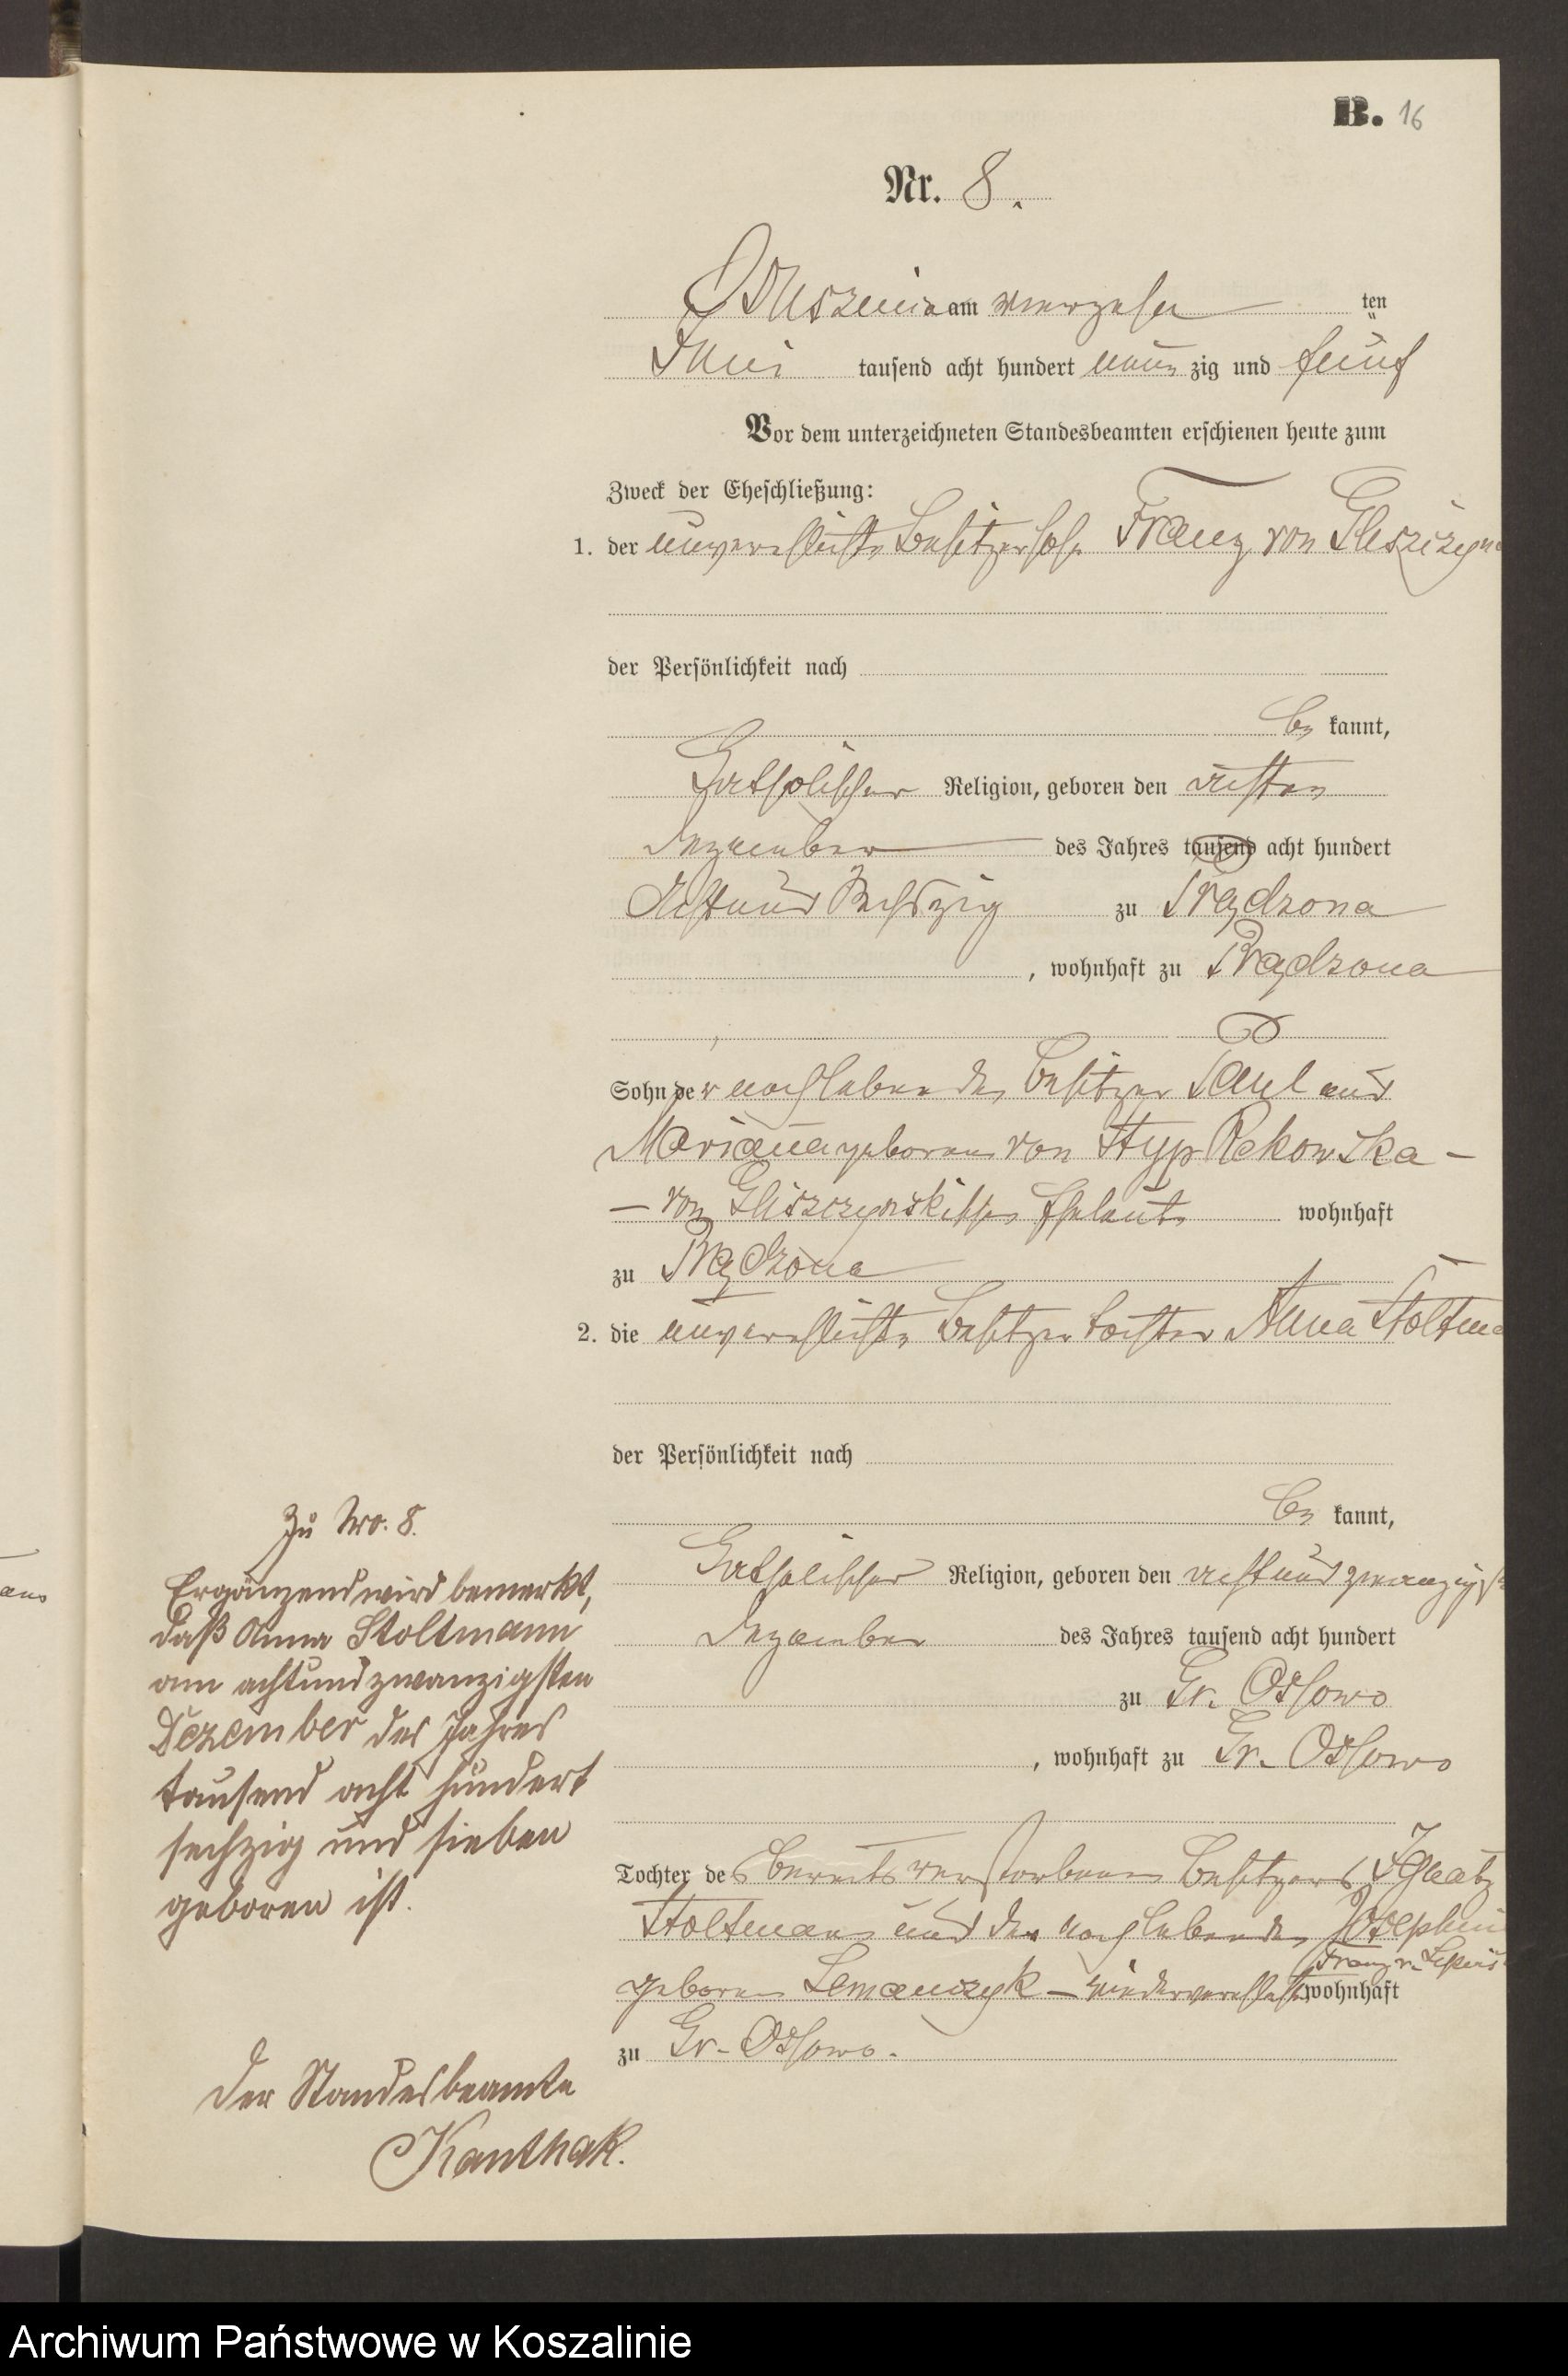 B. 16
Nr. 8.
am vierzehn ten
Juni tausend acht hundert neun zig und fünf
Vor dem unterzeichneten Standesbeamten erschienen heute zum
Zweck der Eheschließung:
1. der unverehelichte Besitzersohn Franz von
der Persönlichkeit nach
be kannt,
katholischer Religion, geboren den achten
Dezember des Jahres tausend acht hundert
achtundsechszig zu Prądzona
, wohnhaft zu Prądzona
Sohn der noch lebenden Besitzer Paul und
Marianna geborene von Styp Rekowska -
- von Gliszczynskischen Eheleute wohnhaft
zu Prądzona
2. die unverehelichte Besitzertochter Anna
der Persönlichkeit nach
be kannt,
katholischer Religion, geboren den achtundzwanzigsten
Dezember des Jahres tausend acht hundert
zu Gr. Ossowo
, wohnhaft zu Gr. Ossowo
Tochter des bereits verstorbenen Besitzers Ignatz
Stoltmann und der noch lebenden
Franz v.
geborene Lemanczyk - wiederverehelichte wohnhaft
zu Gr. Ossowo.
Zu Nro. 8.
Ergänzend wird bemerkt,
daß Anna Stoltmann
am achtundzwanzigsten
Dezember des Jahres
tausend acht hundert
sechzig und sieben
geboren ist.
Der Standesbeamte
Kanthak.
Archiwum Państwowe w Koszalinie